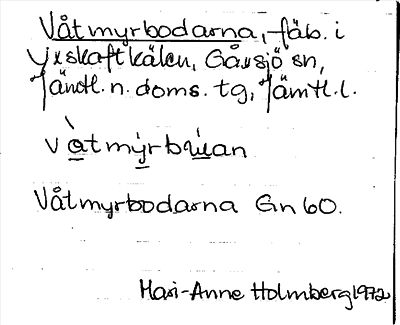 Våtmyrbodarna, fäb. i
Yxskaftkälen, Gåxsjö sn,
Jämtl. n. doms. tg, Jämtl. l.
Våtmyrbodarna Gn 60.
Mari-Anne Holmberg 1972